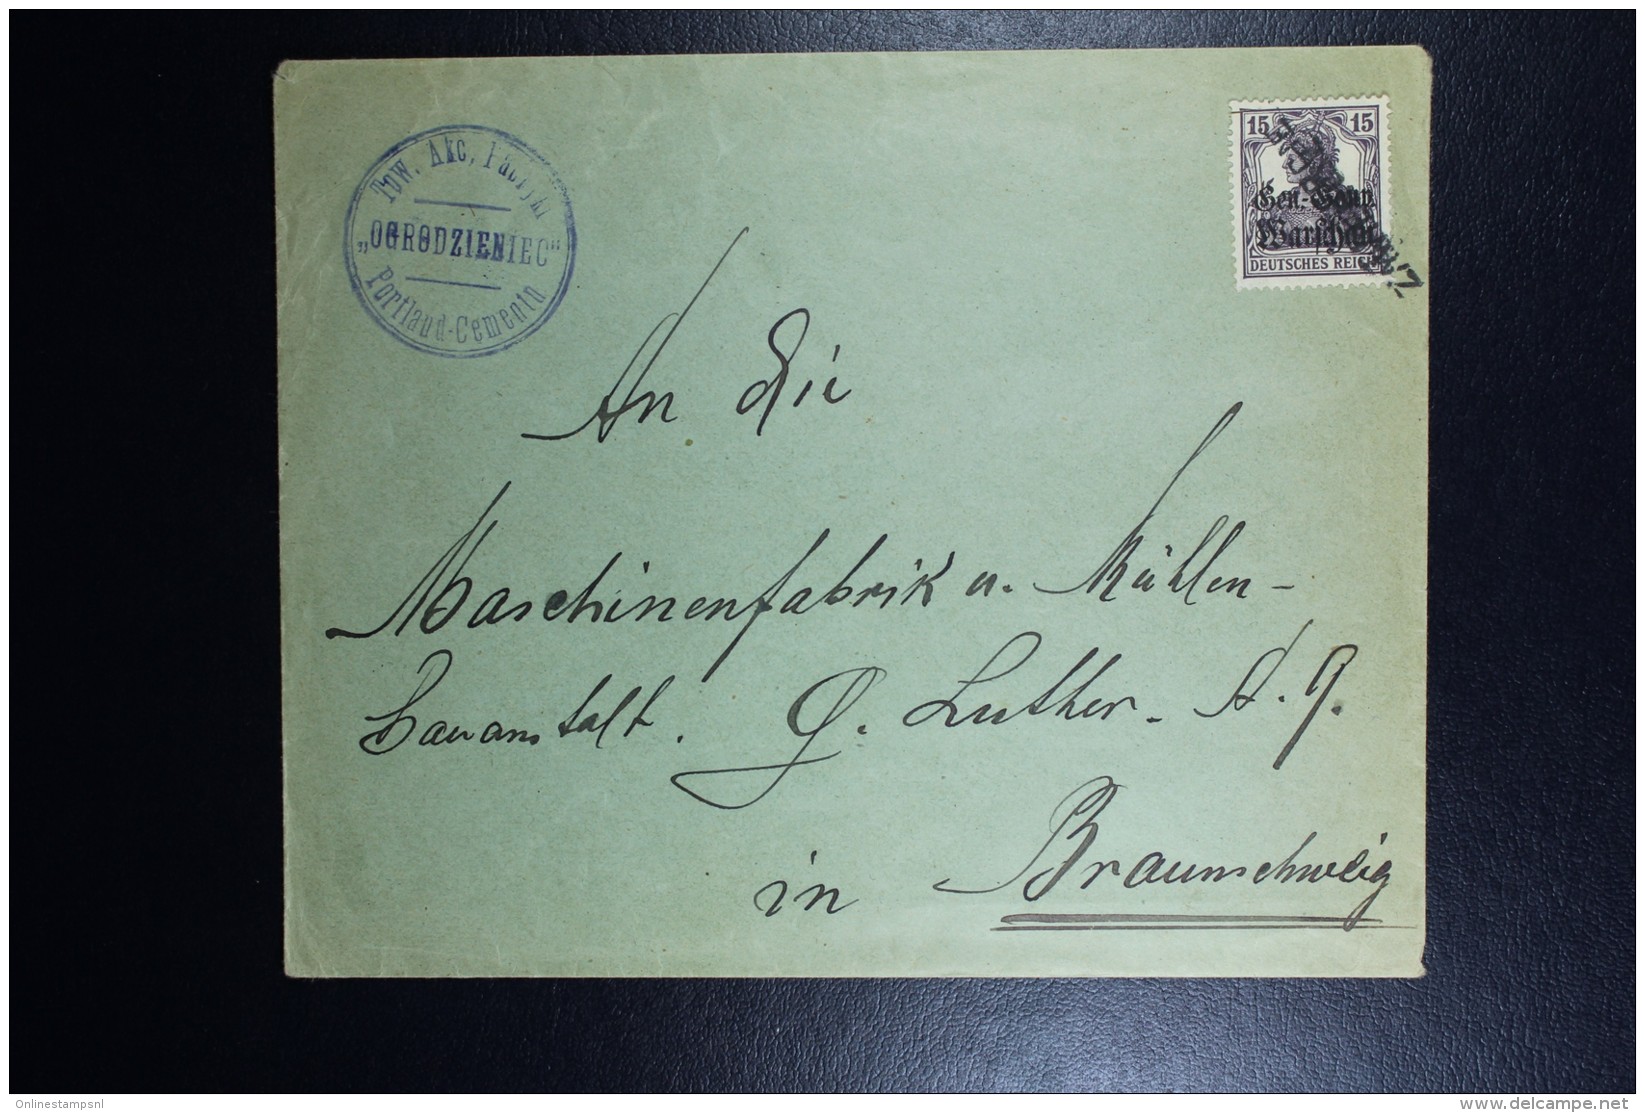 Tow. Akc, Fabryki
„OGRODZIENIEC"
Portland-Cementn
15 15
Gen.-Gouv.
Warschau
DEUTSCHES REICH
An die
Maschinenfabrik u. Mühlen-
bauanstalt. G. Luther. A. G.
in Braunschweig
Onlinestampsnl
www.delcampe.net